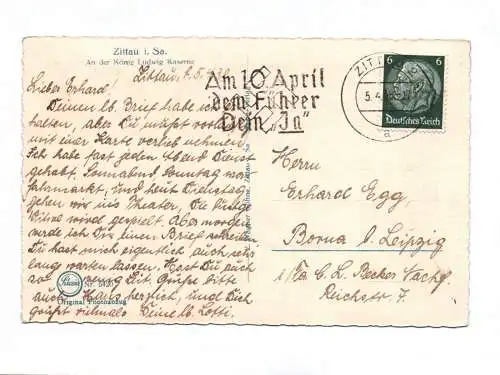 Zittau i. Sa.
An der König Ludwig Kaserne
Zittau, 5.4.
Lieber Erhard!
Deinen lb. Brief habe ich
halten, aber Du mußt vorerst
mit einer Karte vorlieb nehmen.
Ich habe fast jeden Abend Dienst
gehabt. Sonnabend Sonntag war
Jahrmarkt, und heut Dienstag
gehen wir ins Theater, Die lustige
Witwe wird gespielt. Aber morgen
werde ich Dir einen Brief schreiben.
Du hast mich eigentlich auch sehr
lang warten lassen. Hast Du auch
so wenig Zeit. Grüße bitte
auch Haus herzlich, und Dich
grüßt vielmals Deine lb. Lotti.
Nr. 5420
Original Photoabzug
Am 10. April
dem Führer
Dein „Ja"
ZITTAU
5.4.
a
6 6
Deutsches Reich
Herrn
Erhard Egg,
Borna b. Leipzig
i/Fa C. L. Becker Nachf.
Reichstr. 7.